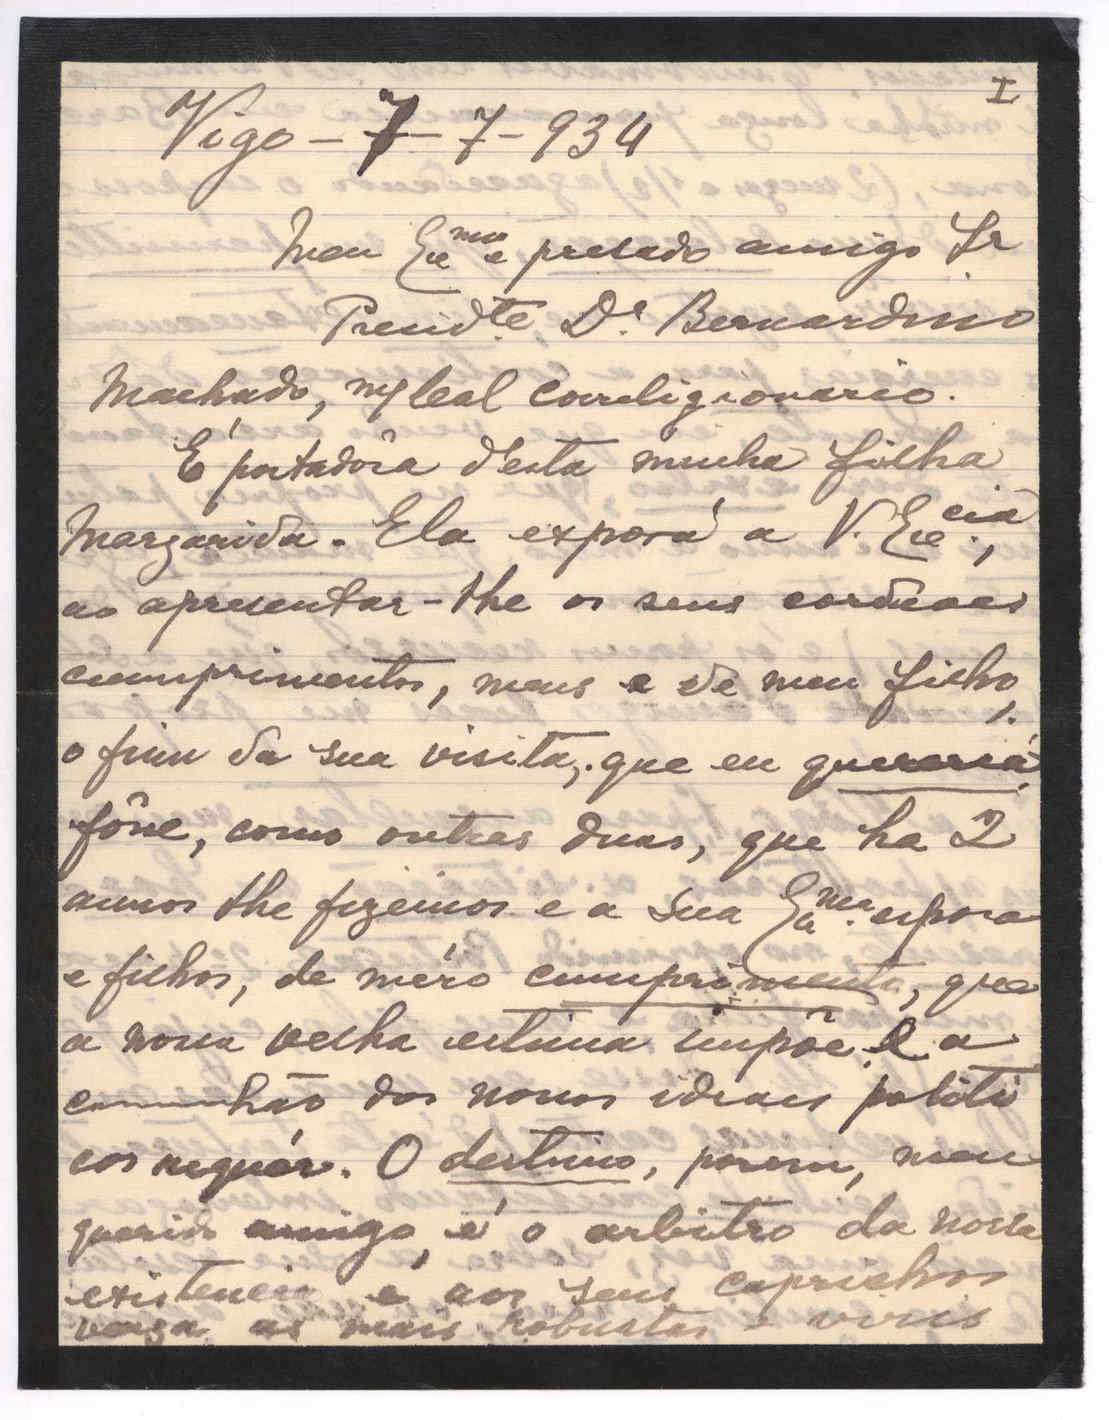 I
Vigo - 7 - 7 - 934
Meu Exmo e presado amigo Sr
Presidte Dr Bernardino
Machado, meu leal correligionario.
É portadôra d'esta minha filha
Margarida. Ela exporá a V. Excia.,
ao apresentar-lhe os seus cordeaes
cumprimentos, meus e de meu filho,
o fim da sua visita, que eu quereria
fôsse, como outras duas, que ha 2
annos lhe fizemos e a sua Exma. esposa
e filhos, de méro cumprimento, que
a nossa velha estima impõe e a
comunhão dos nossos ideaes politi
cos requér. O destino, porem, meu
querido amigo, é o arbitro da nossa
existencia e aos seus caprichos
verga as mais robustas e viris